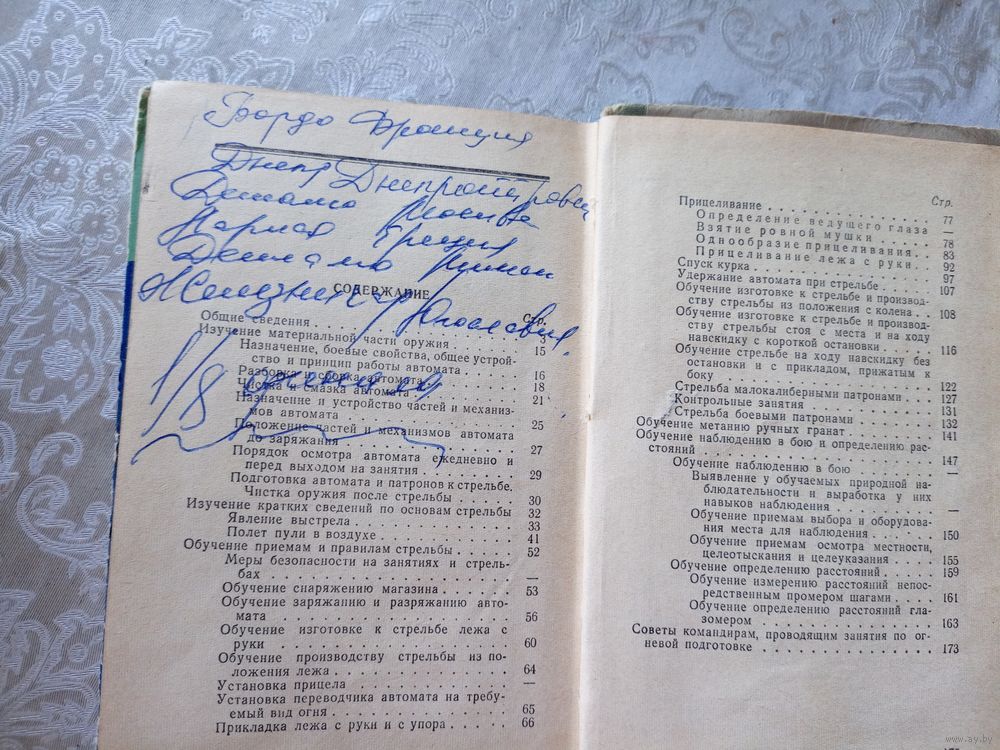 Бордо Франция
Днепр Днепропетровск
Динамо Москва
Лариса Греция
Динамо
Югославия
1/8 финала
СОДЕРЖАНИЕ
Стр.
Общие сведения . . . . . . . . . . . . . 3
Изучение материальной части оружия . . . . 15
Назначение, боевые свойства, общее устрой-
ство и принцип работы автомата . . . . 16
Разборка и сборка автомата . . . . 18
Чистка и смазка автомата . . . . 21
Назначение и устройство частей и механиз-
мов автомата . . . . 25
Положение частей и механизмов автомата
до заряжания . . . . 27
Порядок осмотра автомата ежедневно и
перед выходом на занятия . . . . 29
Подготовка автомата и патронов к стрельбе.
Чистка оружия после стрельбы . . . . 30
Изучение кратких сведений по основам стрельбы 32
Явление выстрела . . . . 33
Полет пули в воздухе . . . . 41
Обучение приемам и правилам стрельбы . . . . 52
Меры безопасности на занятиях и стрель-
бах . . . . —
Обучение снаряжению магазина . . . . 53
Обучение заряжанию и разряжанию авто-
мата . . . . 56
Обучение изготовке к стрельбе лежа с
руки . . . . 60
Обучение производству стрельбы из по-
ложения лежа . . . . 64
Установка прицела . . . . —
Установка переводчика автомата на требу-
емый вид огня . . . . 65
Прикладка лежа с руки и с упора . . . . 66
Стр.
Прицеливание . . . . 77
Определение ведущего глаза —
Взятие ровной мушки . . . . 78
Однообразие прицеливания . . 83
Прицеливание лежа с руки . . 92
Спуск курка . . . . 97
Удержание автомата при стрельбе . . . . 107
Обучение изготовке к стрельбе и производ-
ству стрельбы из положения с колена . . 108
Обучение изготовке к стрельбе и производ-
ству стрельбы стоя с места и на ходу
навскидку с короткой остановки . . . . 116
Обучение стрельбе на ходу навскидку без
остановки и с прикладом, прижатым к
боку . . . . 122
Стрельба малокалиберными патронами . . 127
Контрольные занятия . . . . 131
Стрельба боевыми патронами . . . . 132
Обучение метанию ручных гранат . . . . 141
Обучение наблюдению в бою и определению рас-
стояний . . . . 147
Обучение наблюдению в бою . . . . —
Выявление у обучаемых природной на-
блюдательности и выработка у них
навыков наблюдения . . . . —
Обучение приемам выбора и оборудова-
ния места для наблюдения . . . . 150
Обучение приемам осмотра местности,
целеотыскания и целеуказания . . . . 155
Обучение определению расстояний . . . . 159
Обучение измерению расстояний непос-
редственным промером шагами . . . . 161
Обучение определению расстояний гла-
зомером . . . . 163
Советы командирам, проводящим занятия по ог-
невой подготовке . . . . 173
www.ay.by